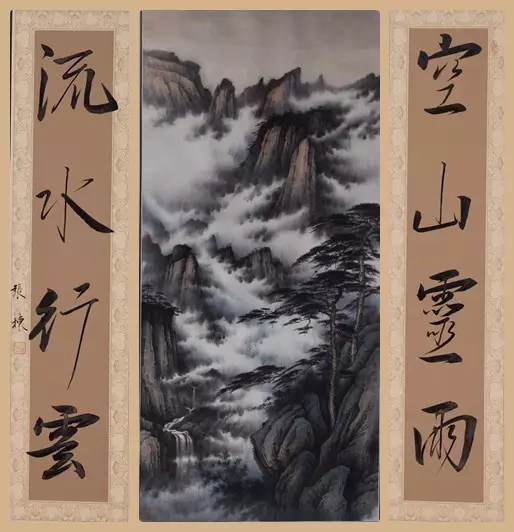 空山靈雨
流水行雲
張